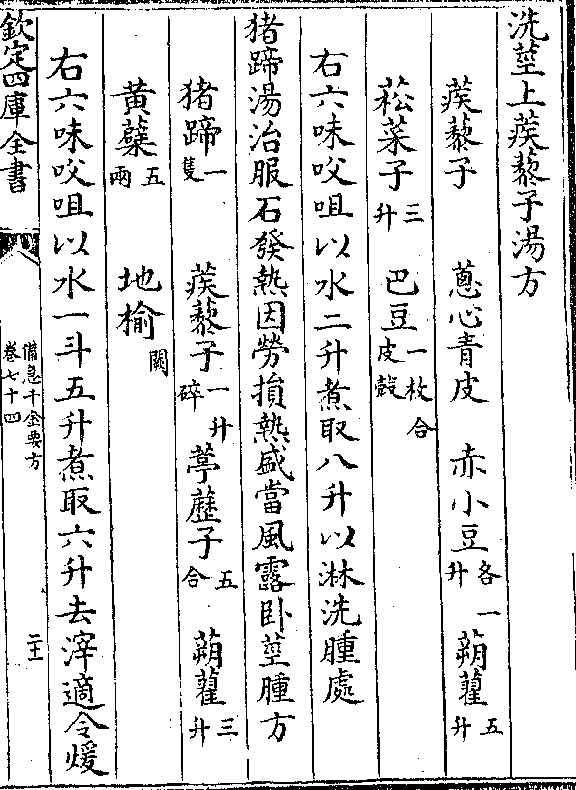 洗莖上蒺藜子湯方
蒺藜子 蔥心青皮 赤小豆各一升 蒴藋五升
菘菜子三升 巴豆一枚合皮殼
右六味㕮咀以水二升煮取八升以淋洗腫處
猪蹄湯治服石發熱因勞損熱盛當風露卧莖腫方
猪蹄一隻 蒺藜子一升碎 葶藶子五合 蒴藋三升
黃蘗五兩 地榆闕
右六味㕮咀以水一斗五升煮取六升去滓適令煖
欽定四庫全書
備急千金要方
卷七十四
二十一